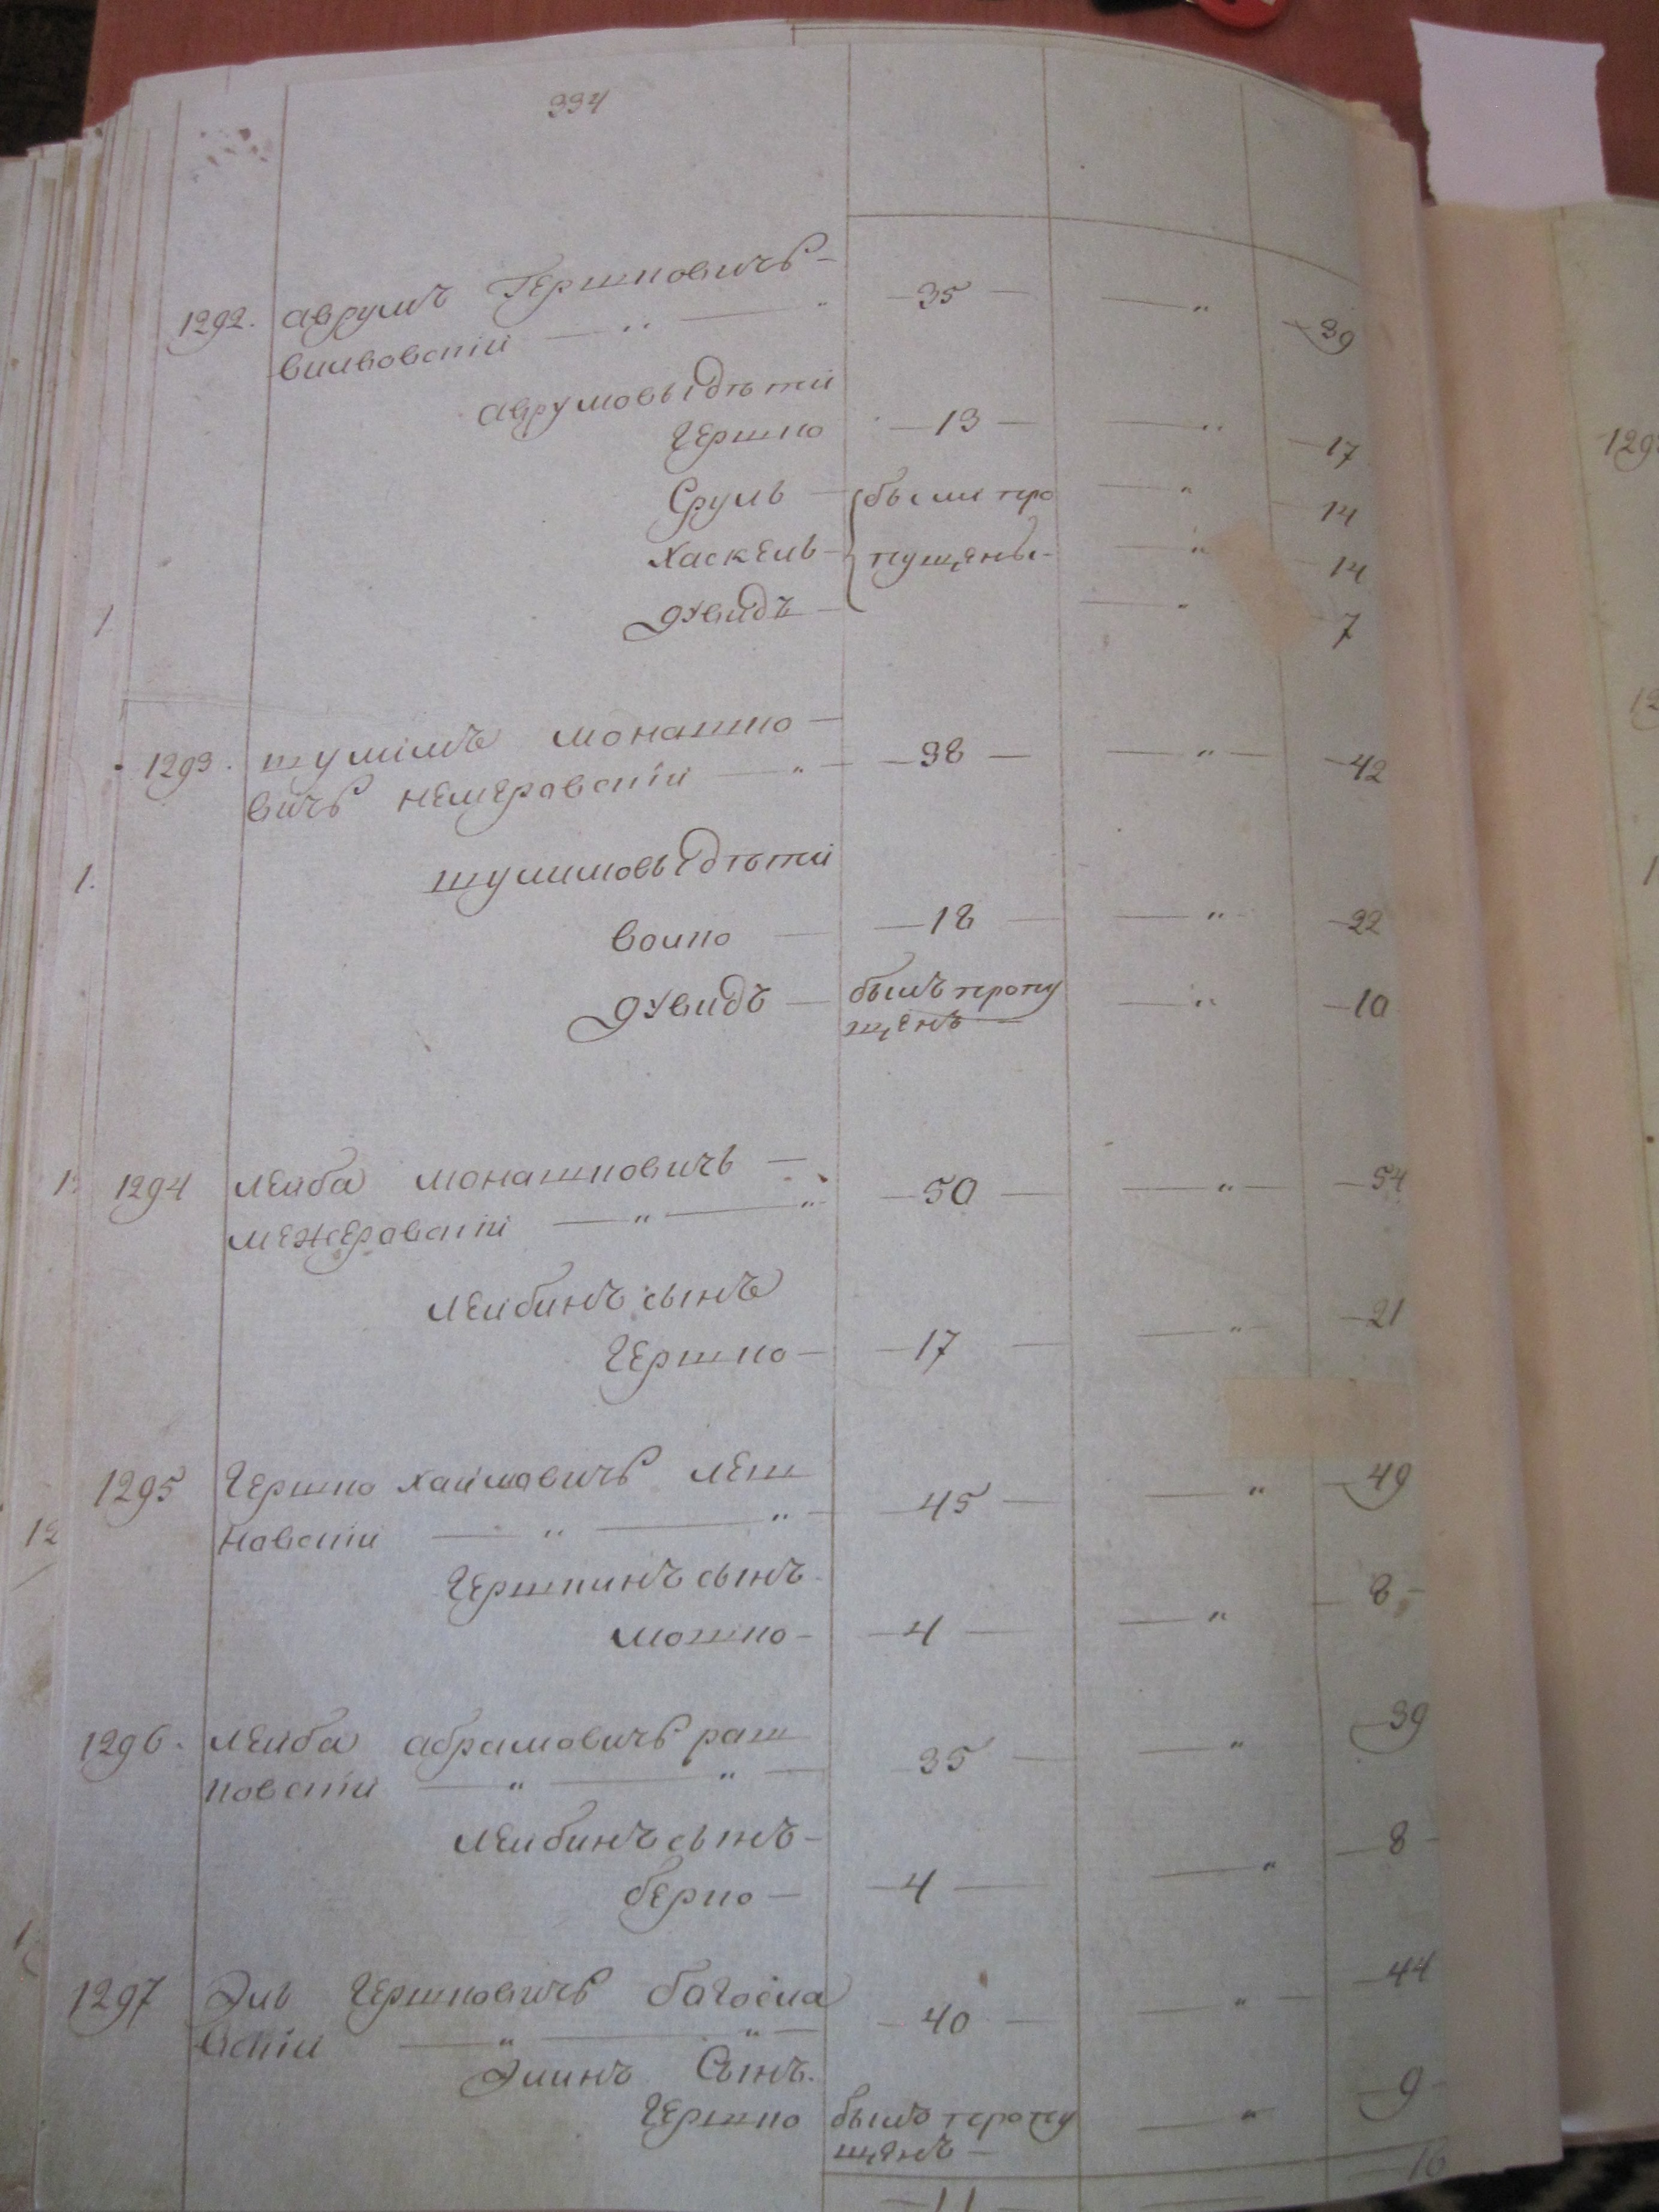 334
1292. Аврумъ Гершковичъ — 35 — — " — 39
Вильковскій — " — "
Аврумовы дѣти
Гершко — 13 — — " — 17
Сруль — были про — " 14
Хаскель — пущены — " 14
Дувидъ — — " 7
1293. Шулимъ Монашко — 38 — — " — — 42
вичъ Немеровскій — " —
Шулимовы дѣти
Волко — — 18 — — " — 22
Дувидъ — былъ пропу — " — 10
щенъ —
1294 Лейба Монашковичъ — — 50 — — " — — 54
Межеровскій — " — "
Лейбинъ сынъ
Гершко — — 17 — — " — 21
1295 Гершко Хаимовичъ Леш — 45 — — " — 49
новскій — " — " —
Гершкинъ сынъ
Мошко — — 4 — — " — 8 —
1296. Лейба Абрамовичъ Раш 35 — — " — 39
ковскій — " — " —
Лейбинъ сынъ —
Берко — — 4 — — " — 8 —
1297 Эль Гершковичъ Богосла — 40 — — " — — 44
вскій — " — " —
Элинъ Сынъ.
Гершко былъ пропу — " — 9 —
щенъ —
— 11 — — 16